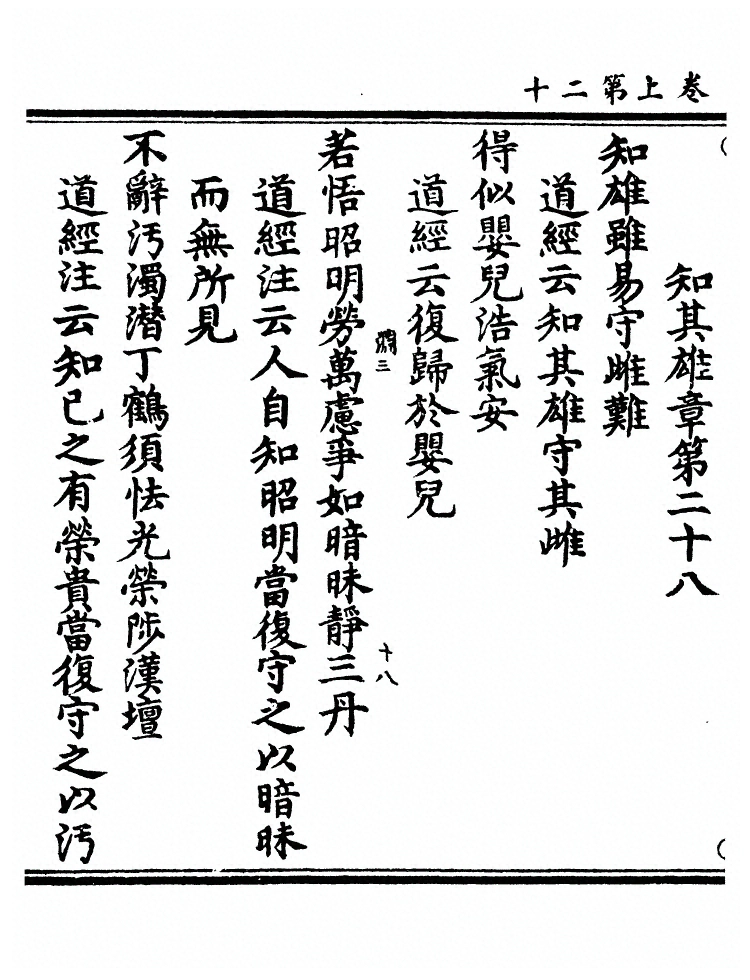 卷上第二十
知其雄章第二十八
知雄雖易守雌難
道經云知其雄守其雌
得似嬰兒浩氣安
道經云復歸於嬰兒
鴅三
十八
若悟昭明勞萬慮爭如暗昧靜三丹
道經注云人自知昭明當復守之以暗昧
而無所見
不辭汚濁潛丁鶴須怯光榮陟漢壇
道經注云知已之有榮貴當復守之以汚